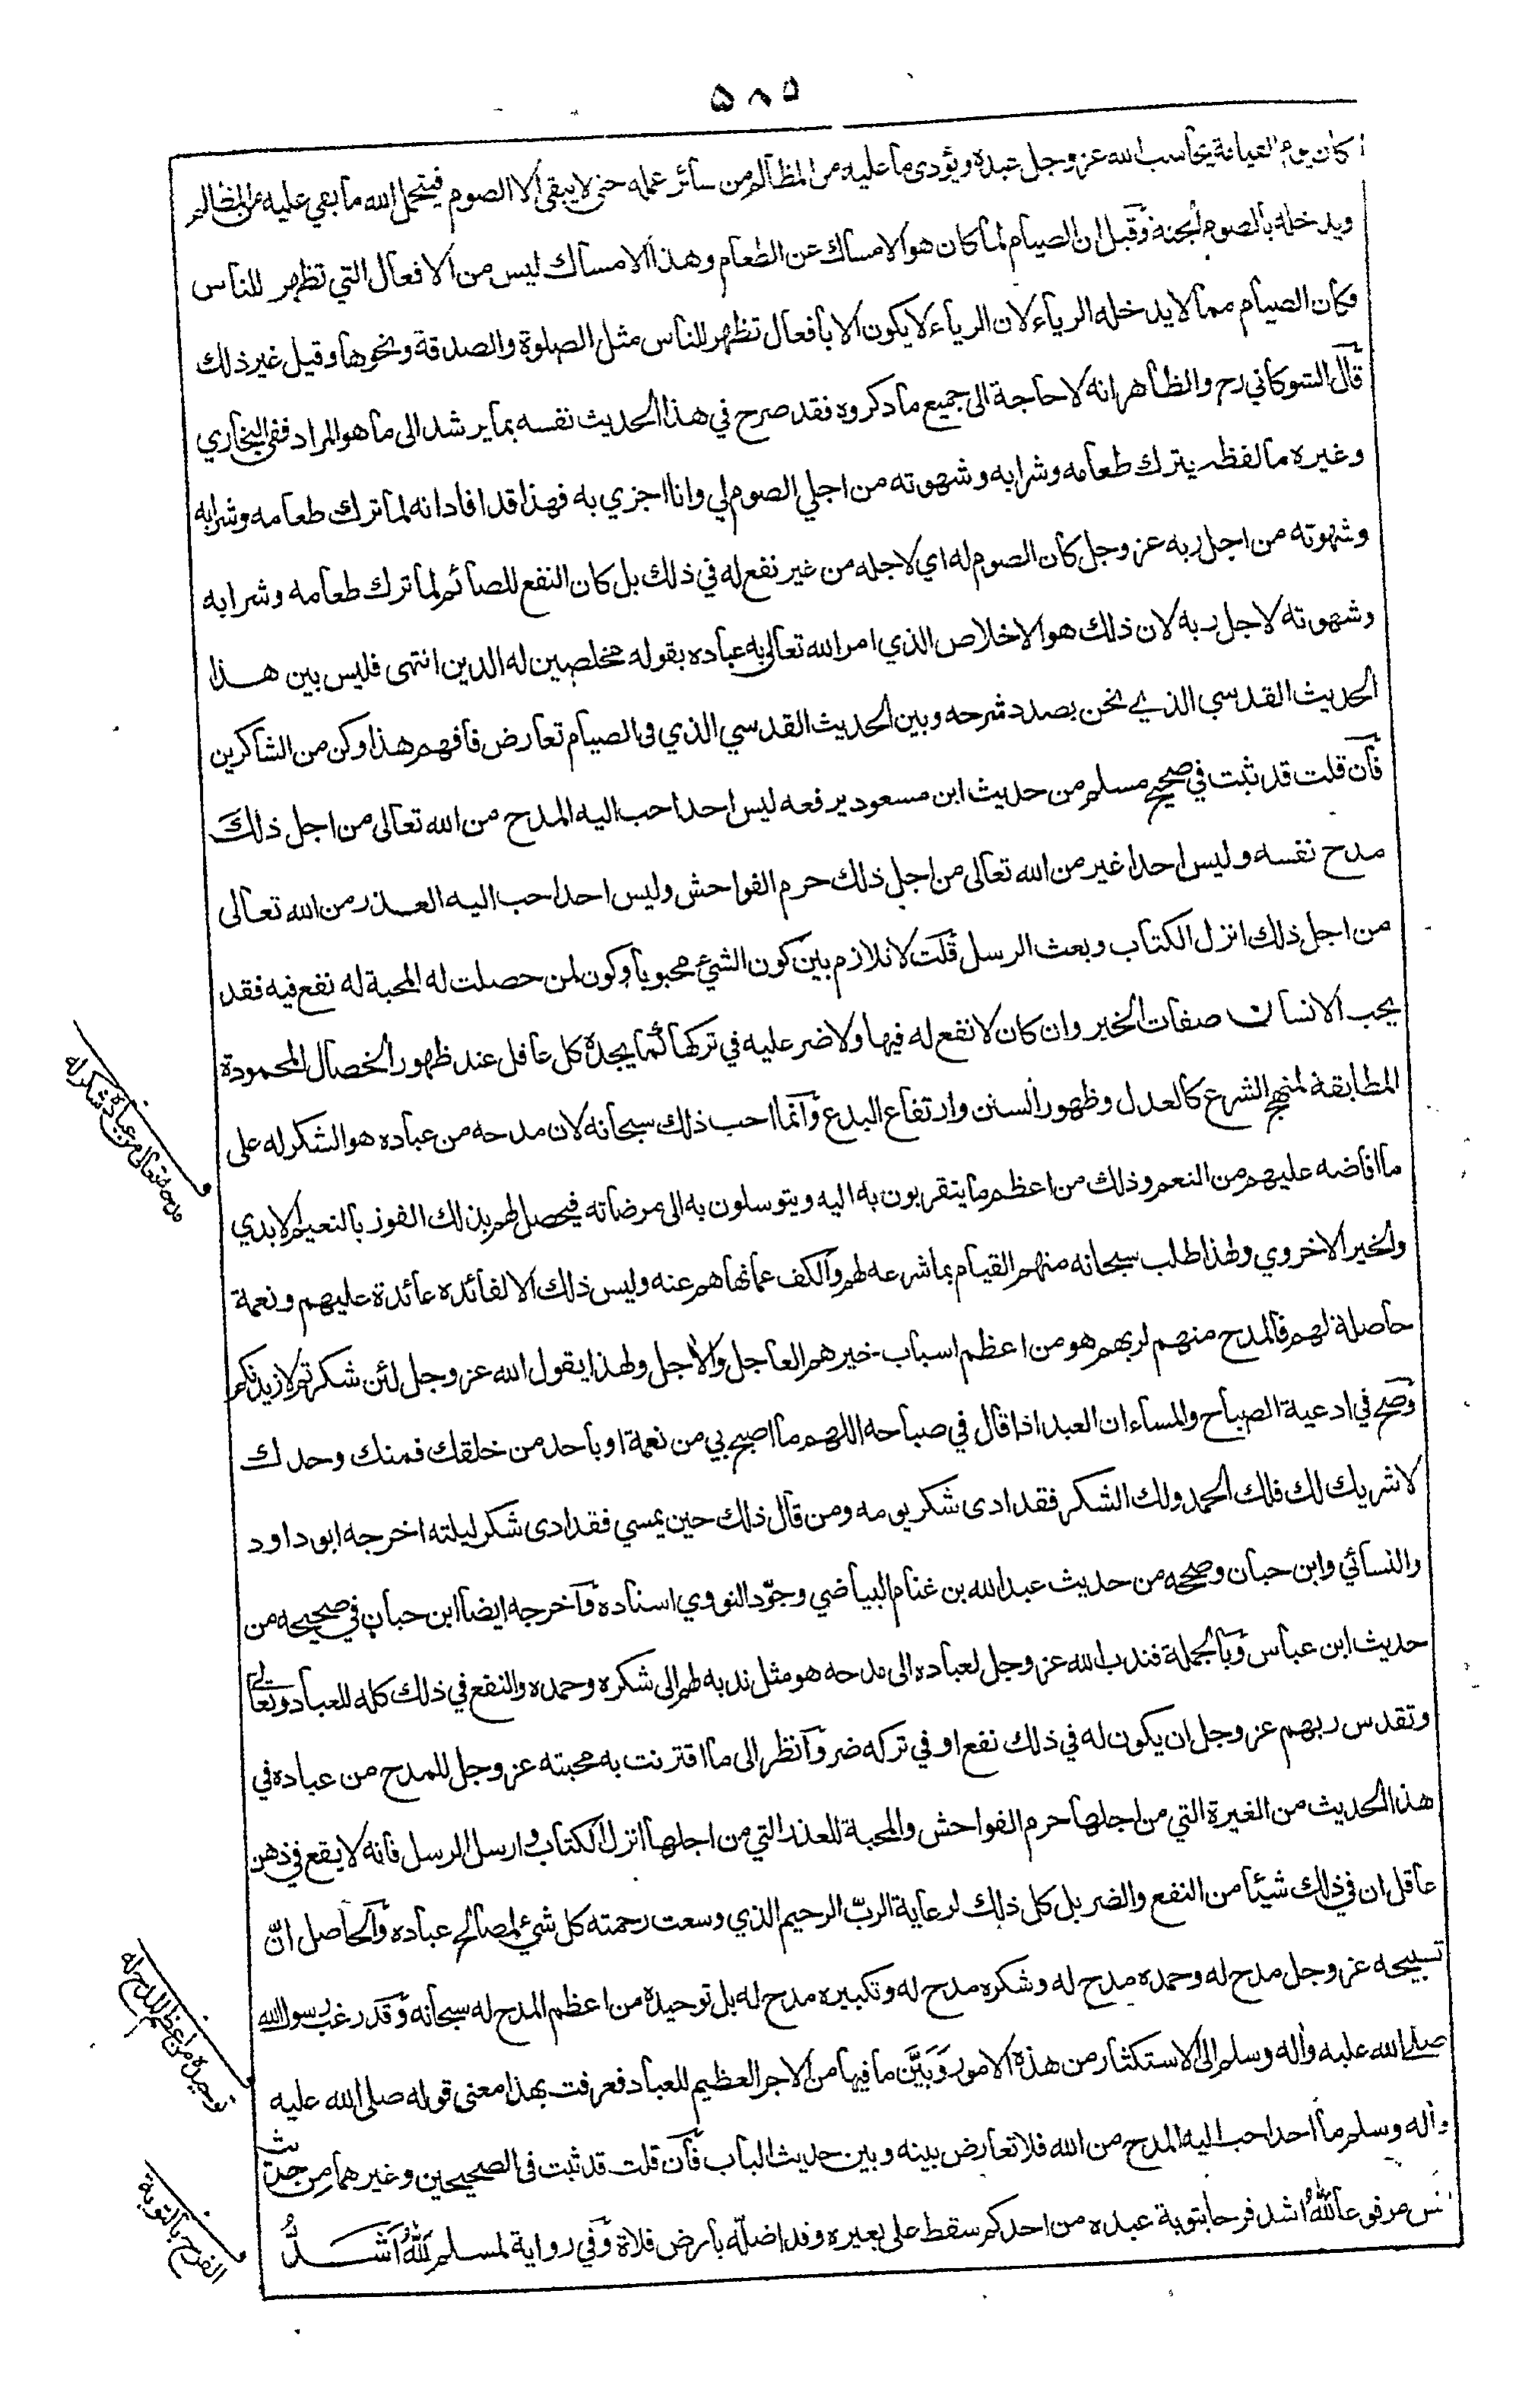 ٥٨٥
كان يوم القيامة يحاسب الله عز وجل عبده ويؤدى ما عليه من المظالم من سائر عمله حتى لا يبقى الا الصوم فيتحمل الله ما بقي عليه من المظالم
ويدخله بالصوم الجنة وقيل ان الصيام لما كان هو الامساك عن الطعام وهذا الامساك ليس من الافعال التي تظهر للناس
فكان الصيام مما لا يدخله الرياء لان الرياء لا يكون الا بافعال تظهر للناس مثل الصلوة والصدقة ونحوها وقيل غير ذلك
قال الشوكاني رح والظاهر انه لا حاجة الى جميع ما ذكروه فقد صرح في هذا الحديث نفسه بما يرشد الى ما هو المراد ففي البخاري
وغيره ما لفظه يترك طعامه وشرابه وشهوته من اجلي الصوم لي وانا اجزي به فهذا قد افاد انه لما ترك طعامه وشرابه
وشهوته من اجل ربه عز وجل كان الصوم له اي لاجله من غير نفع له في ذلك بل كان النفع للصائم لما ترك طعامه وشرابه
وشهوته لاجل ربه لان ذلك هو الاخلاص الذي امر الله تعالى به عباده بقوله مخلصين له الدين انتهى فليس بين هذا
الحديث القدسي الذي نحن بصدد شرحه وبين الحديث القدسي الذي فى الصيام تعارض فافهم هذا وكن من الشاكرين
فان قلت قد ثبت في صحيح مسلم من حديث ابن مسعود يرفعه ليس احدا حب اليه المدح من الله تعالى من اجل ذلك
مدح نفسه وليس احدا غير من الله تعالى من اجل ذلك حرم الفواحش وليس احدا حب اليه العذر من الله تعالى
من اجل ذلك انزل الكتاب وبعث الرسل قلت لا تلازم بين كون الشيء محبوبا وكون لمن حصلت له المحبة له نفع فيه فقد
يحب الانسان صفات الخير وان كان لا نفع له فيها ولا ضر عليه في تركها كما يجده كل عاقل عند ظهور الخصال المحمودة
المطابقة لمنهج الشرع كالعدل وظهور السنن وارتفاع البدع وانما احب ذلك سبحانه لان مدحه من عباده هو الشكر له على
ما افاضه عليهم من النعم وذلك من اعظم ما يتقربون به اليه ويتوسلون به الى مرضاته فيحصل لهم بذلك الفوز بالنعيم الابدي
والخير الاخروي ولهذا طلب سبحانه منهم القيام بما شرعه لهم والكف عما نهاهم عنه وليس ذلك الا لفائدة عائدة عليهم ونعمة
حاصلة لهم فالمدح منهم لربهم هو من اعظم اسباب خيرهم العاجل والآجل ولهذا يقول الله عز وجل لئن شكرتم لازيدنكم
وصح في ادعية الصباح والمساء ان العبد اذا قال في صباحه اللهم ما اصبح بي من نعمة او باحد من خلقك فمنك وحدك
لا شريك لك فلك الحمد ولك الشكر فقد ادى شكر يومه ومن قال ذلك حين يمسي فقد ادى شكر ليلته اخرجه ابو داود
والنسائي وابن حبان وصححه من حديث عبد الله بن غنام البياضي وجوّد النووي اسناده واخرجه ايضا ابن حبان في صحيحه من
حديث ابن عباس وبالجملة فندب الله عز وجل لعباده الى مدحه هو مثل ندبه لهم الى شكره وحمده والنفع في ذلك كله للعباد وتعالى
وتقدس ربهم عز وجل ان يكون له في ذلك نفع او في تركه ضر وانظر الى ما اقترنت به محبته عز وجل للمدح من عباده في
هذا الحديث من الغيرة التي من اجلها حرم الفواحش والمحبة للعذر التي من اجلها انزل الكتاب وارسل الرسل فانه لا يقع في ذهن
عاقل ان في ذلك شيئا من النفع والضر بل كل ذلك لرعاية الربّ الرحيم الذي وسعت رحمته كل شيء لمصالح عباده والحاصل انّ
تسبيحه عز وجل مدح له وحمده مدح له وشكره مدح له وتكبيره مدح له بل توحيده من اعظم المدح له سبحانه وقد رغب رسول الله
صلى الله عليه وآله وسلم الى الاستكثار من هذه الامور وَبَيَّن ما فيها من الاجر العظيم للعباد فعرفت بهذا معنى قوله صلى الله عليه
وآله وسلم ما احدا حب اليه المدح من الله فلا تعارض بينه وبين حديث الباب فان قلت قد ثبت فى الصحيحين وغيرهما من حديث
انس مرفوعا للهُ اشد فرحا بتوبة عبده من احدكم سقط على بعيره وقد اضلّه بارض فلاة وفي رواية لمسلم للهُ اَشَدُّ
مدحه تعالى من عباده شكر له
توحيده من اعظم المدح له
الفرح بالتوبة